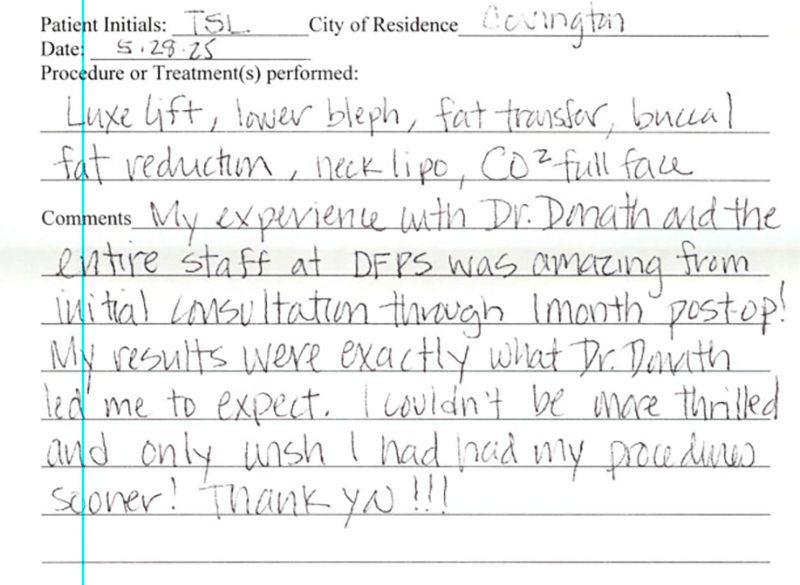 Patient Initials: TSL City of Residence Covington
Date: 5.28.25
Procedure or Treatment(s) performed:
Luxe lift, lower bleph, fat transfer, buccal
fat reduction, neck lipo, CO² full face
Comments My experience with Dr. Donath and the
entire staff at DFPS was amazing from
initial consultation through 1 month post-op!
My results were exactly what Dr. Donath
led me to expect. I couldn't be more thrilled
and only wish I had had my procedures
sooner! Thank you!!!